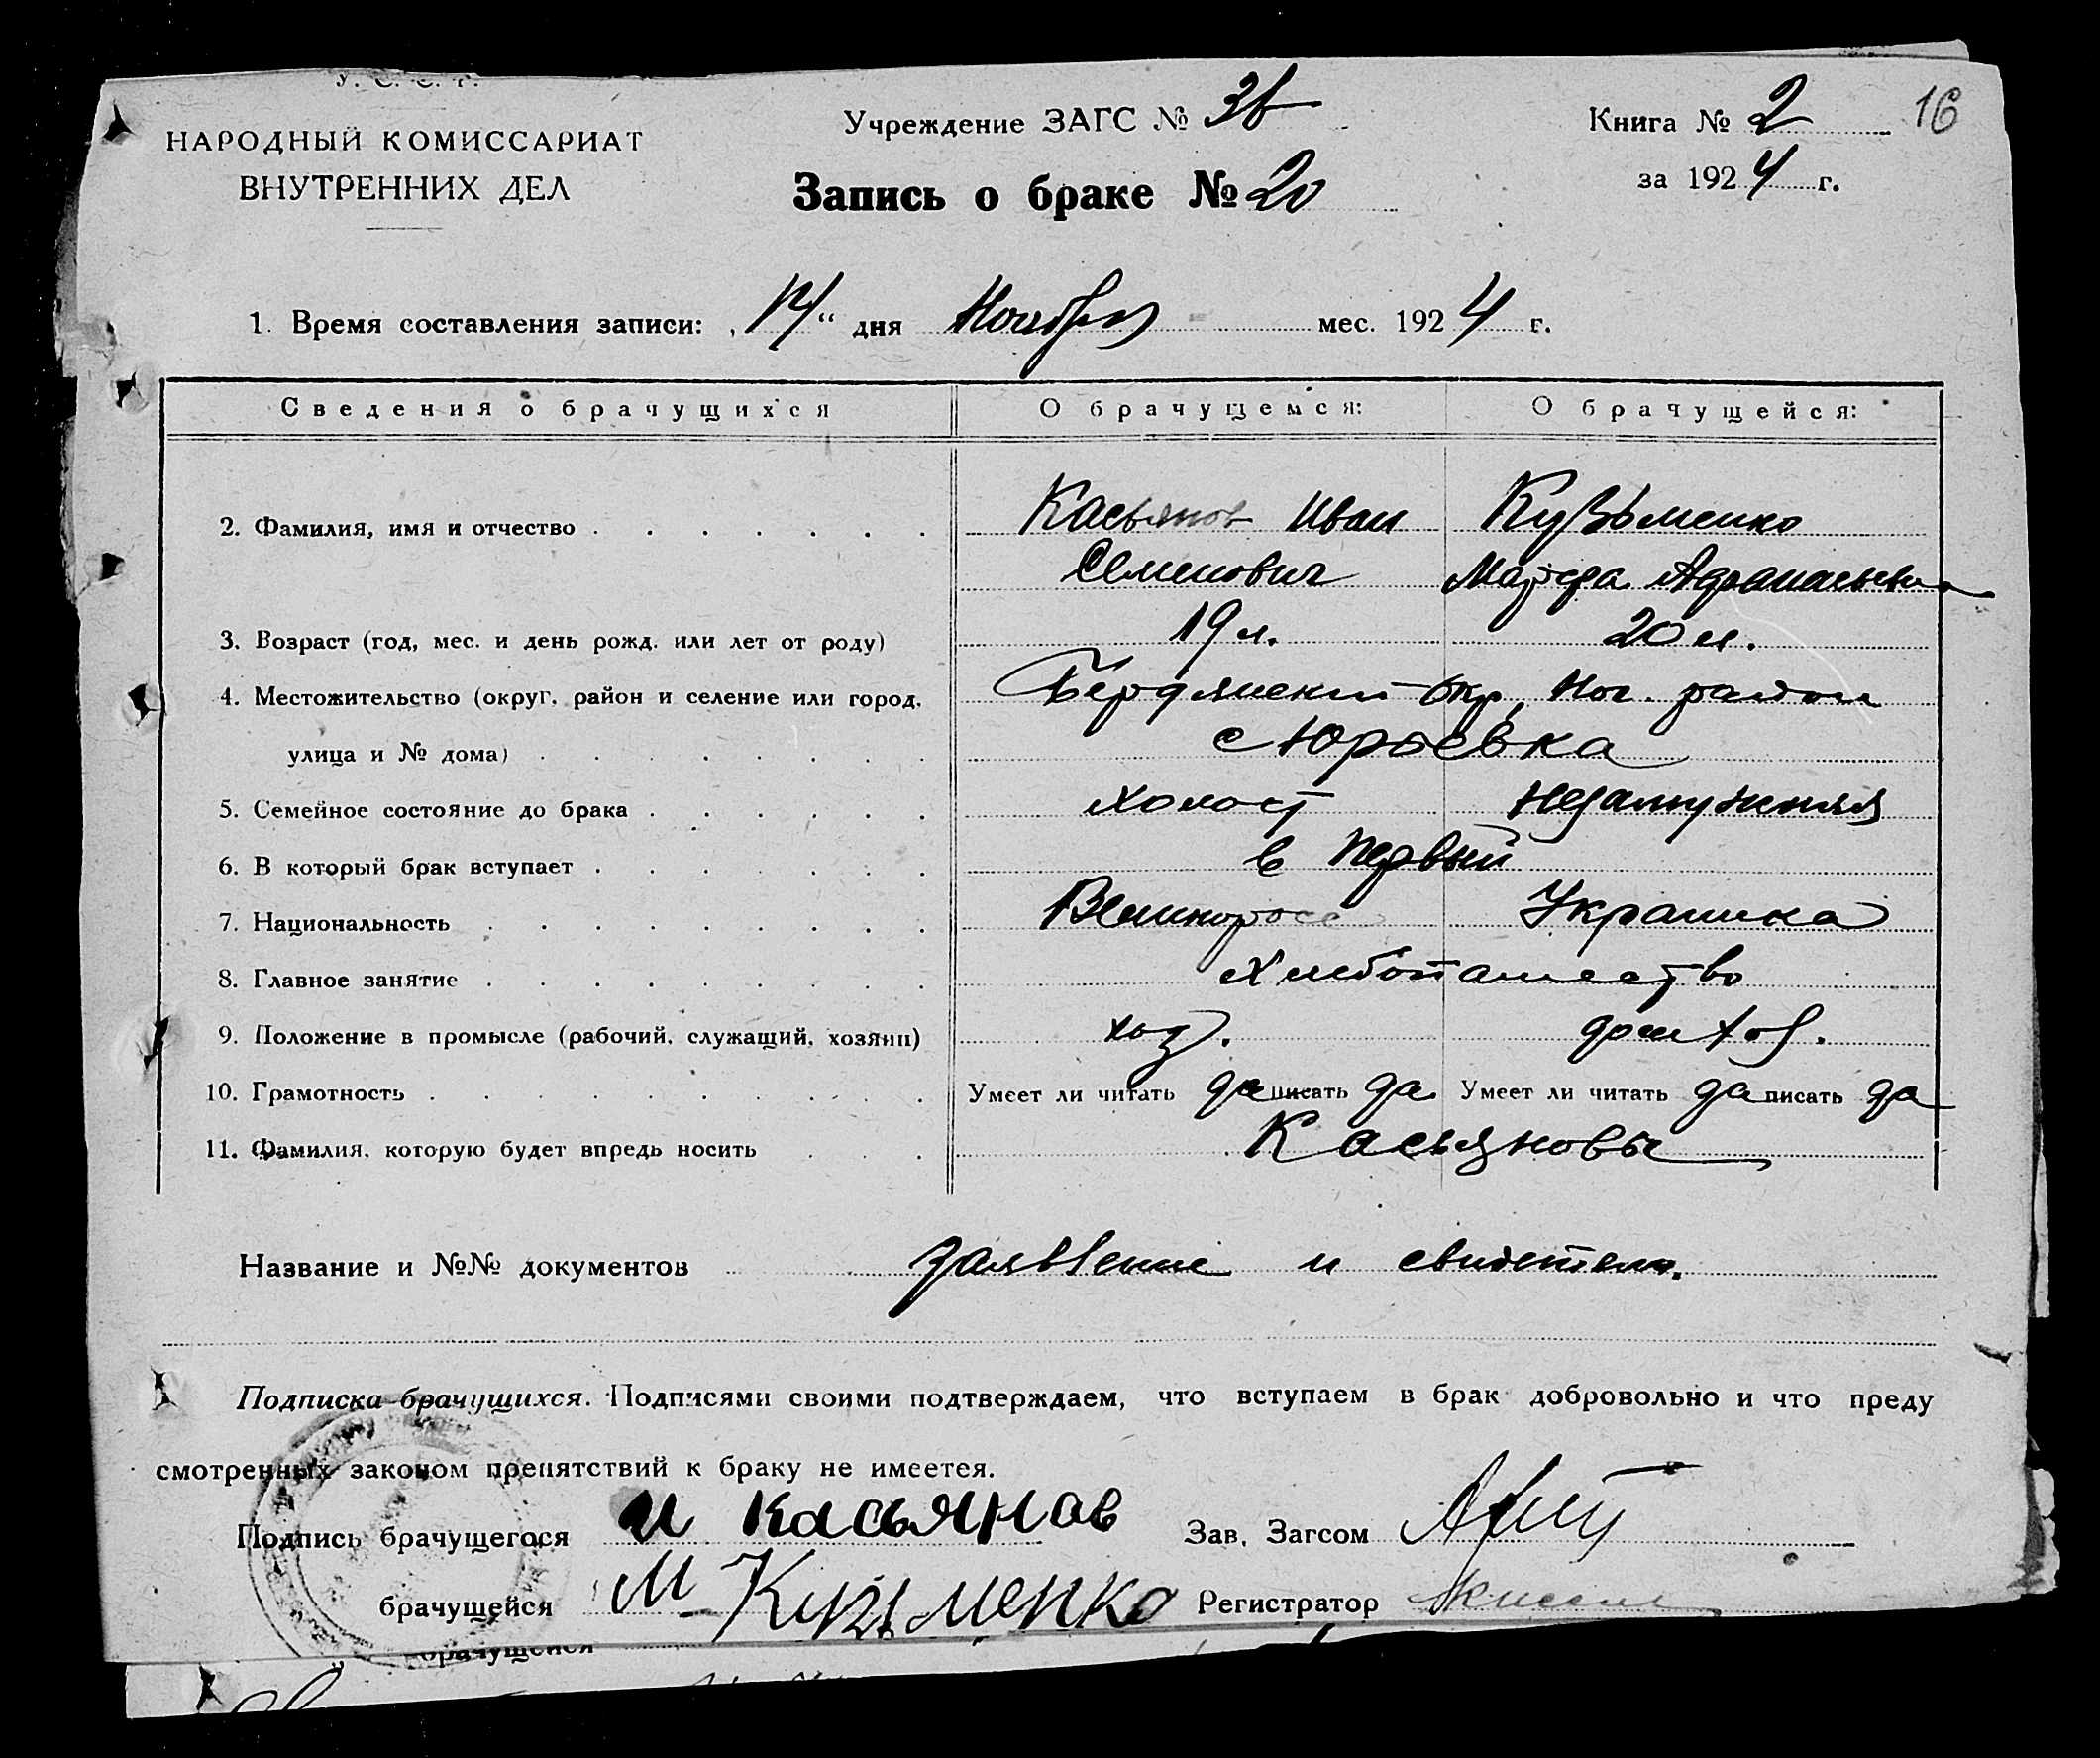 У. С. С. Р.
НАРОДНЫЙ КОМИССАРИАТ
ВНУТРЕННИХ ДЕЛ
Учреждение ЗАГС №
Запись о браке № 20
Книга № 2
16
за 1924 г.
1. Время составления записи: „14“ дня Ноября мес. 1924 г.
Сведения о брачущихся О брачущемся: О брачущейся:
2. Фамилия, имя и отчество Касьянов Иван Кузьменко
Семенович Марфа Афанасьевна
3. Возраст (год, мес. и день рожд. или лет от роду) 19 л. 20 л.
4. Местожительство (округ, район и селение или город, Бердянский окр, Ног. район
улица и № дома) с Юрьевка
5. Семейное состояние до брака холост незамужняя
6. В который брак вступает в первый
7. Национальность Великоросс Украинка
8. Главное занятие Хлебопашество
9. Положение в промысле (рабочий, служащий, хозяин) хоз.
10. Грамотность Умеет ли читать да писать да Умеет ли читать да писать да
11. Фамилия, которую будет впредь носить Касьяновы
Название и №№ документов заявление и свидетели.
Подписка брачущихся. Подписями своими подтверждаем, что вступаем в брак добровольно и что преду
смотренных законом препятствий к браку не имеется.
Подпись брачущегося и касьянов Зав. Загсом
брачущейся М Кузьменко Регистратор
брачущейся